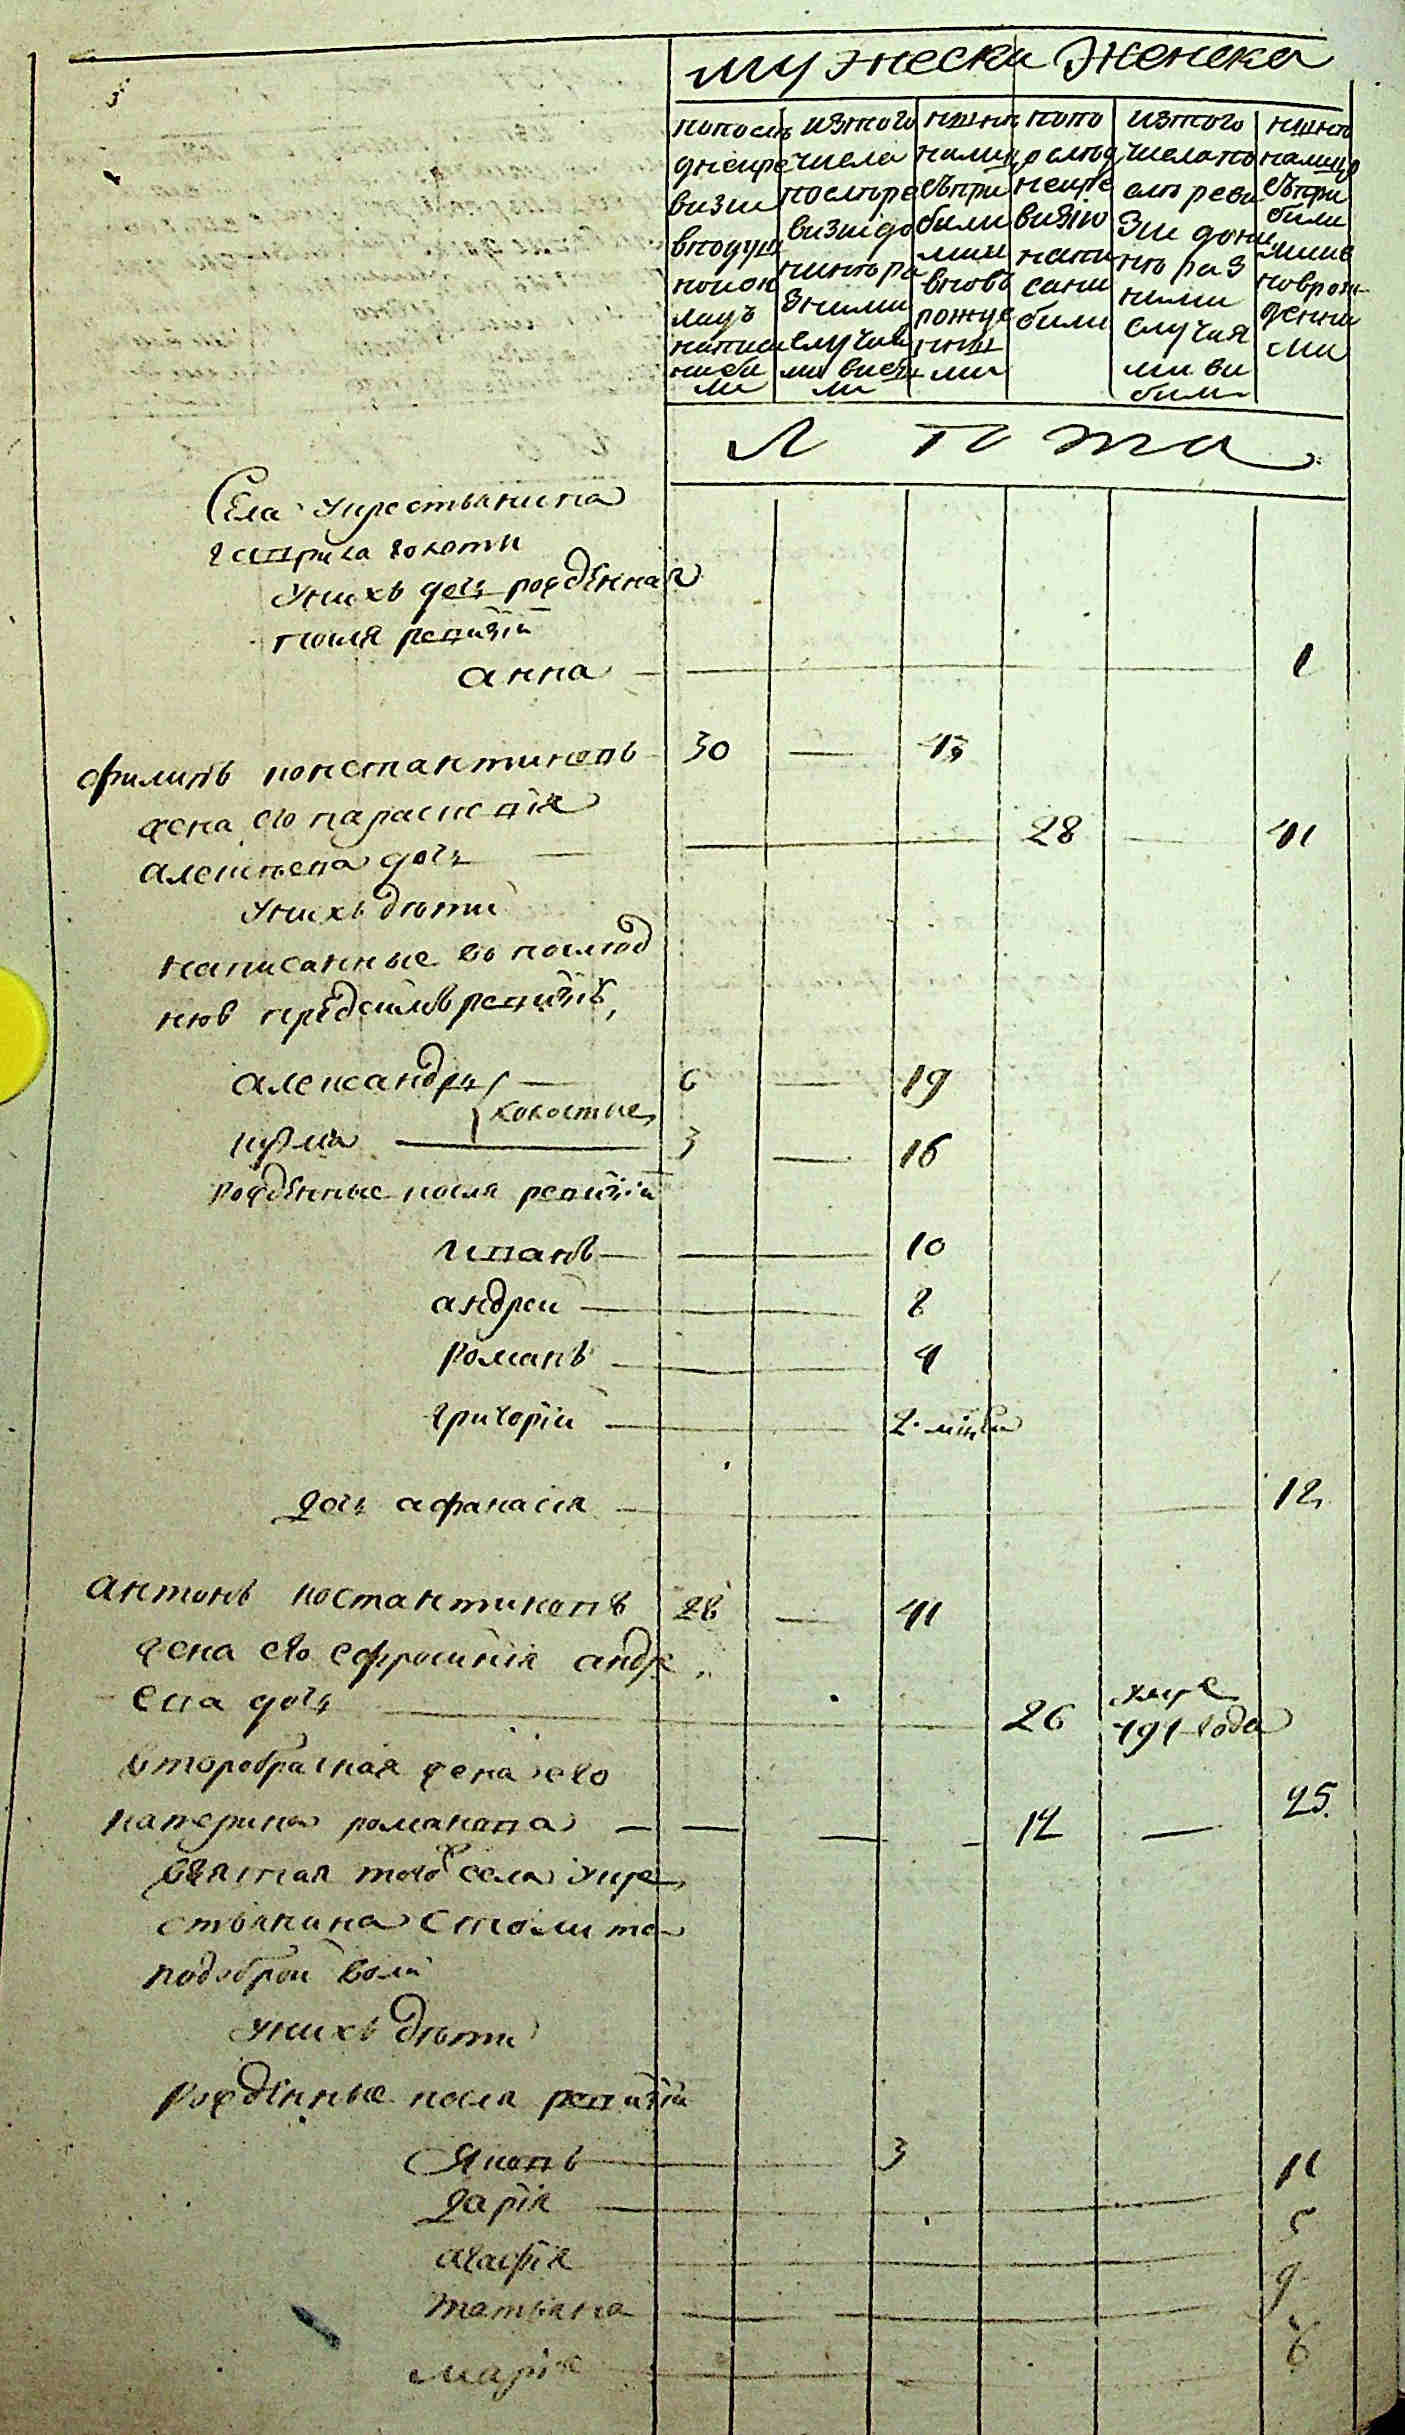 мужеска женска
попослѣ
днейре
визии
вподуш
ной ок
ладъ
написа
ни би
ли
изтого
числа
послѣре
визиидо
нинѣра
зними
случая
ми виби
ли
ннѣ
налиц
съпри
били
ми
вновь
рожде
нни
ми
попо
слѣд
нейре
визїю
напи
сани
били
изтого
числапо
слѣ реви
зии дони
нѣ раз
ними
случая
ми ви
били
ннѣ
налице
съпри
били
миив
новрож
денни
ми
Лѣта
Села укрестьянина
гаврила гокоти
уихъ дочь рожденная
посля ревизїи
анна 1
филипъ константиновъ 30 43
жена его параскевїя
алексѣева дочь 28 41
унихъ дѣти
написанные во послѣд
нюю предсимъ ревизїю,
александръ 6 19
холостые
кузма 3 16
рожденные посля ревизїи
иванъ 10
андрей 8
романъ 4
григорїй 2
дочь афанасїя 12
антонъ костантиновъ 28 41
жена его ефросинїя андре
ева дочь 26 умре
791 года
второбрасная жена его
катерина романова 12 25
взятая того ж села укре
стьянина
подоброй воли
унихъ дѣти
рожденные посля ревизїи
Яковъ 3
дарїя 11
агафїя 5
татьяна 9
марїя 6